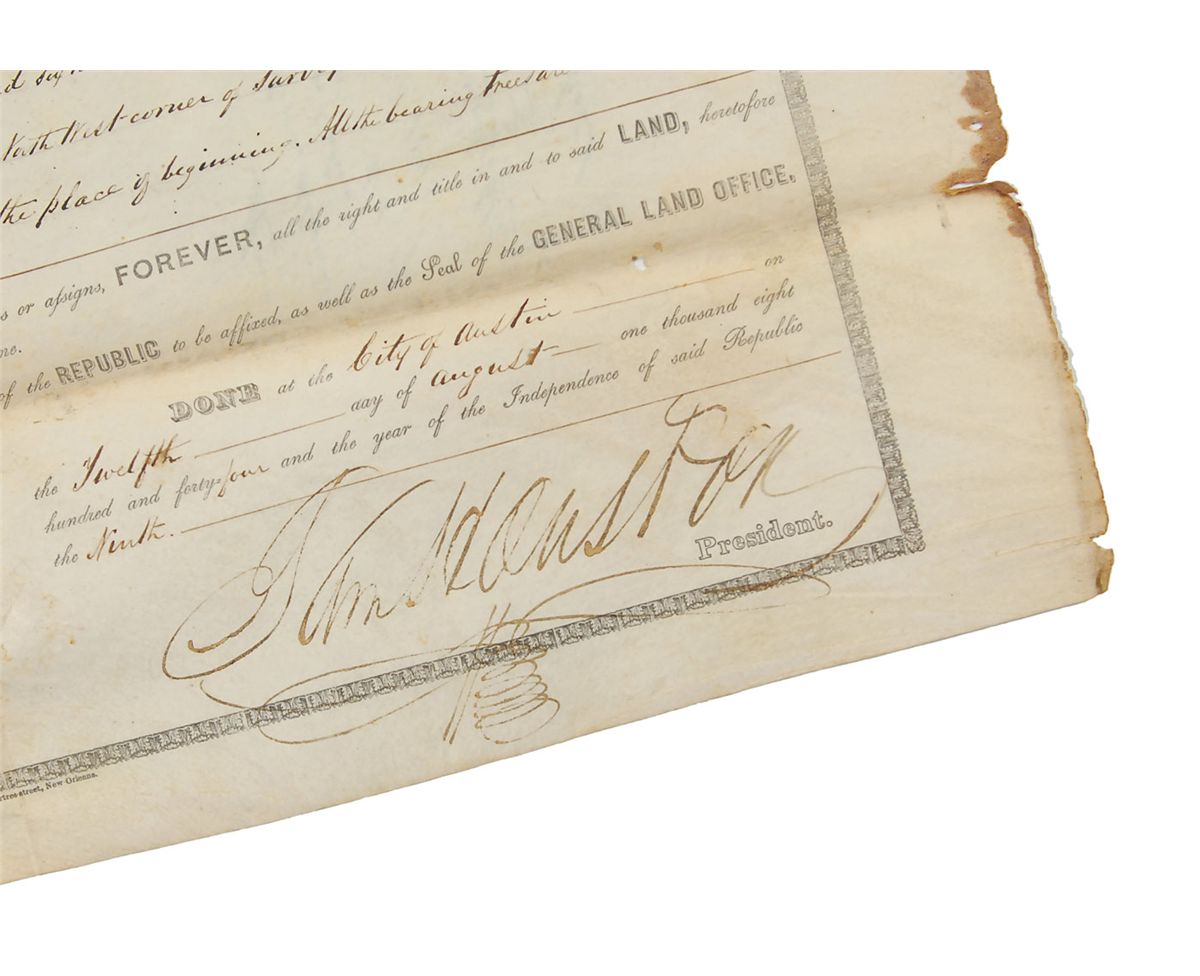 North West corner of Survey
the place of beginning. All the bearing trees are
FOREVER, all the right and title in and to said LAND, heretofore
or aſsigns,
of the REPUBLIC to be affixed, as well as the Seal of the GENERAL LAND OFFICE,
DONE at the City of Austin on
the Twelfth day of August one thousand eight
hundred and forty-four and the year of the Independence of said Republic
the Ninth.
Sam Houston
President.
street, New Orleans.